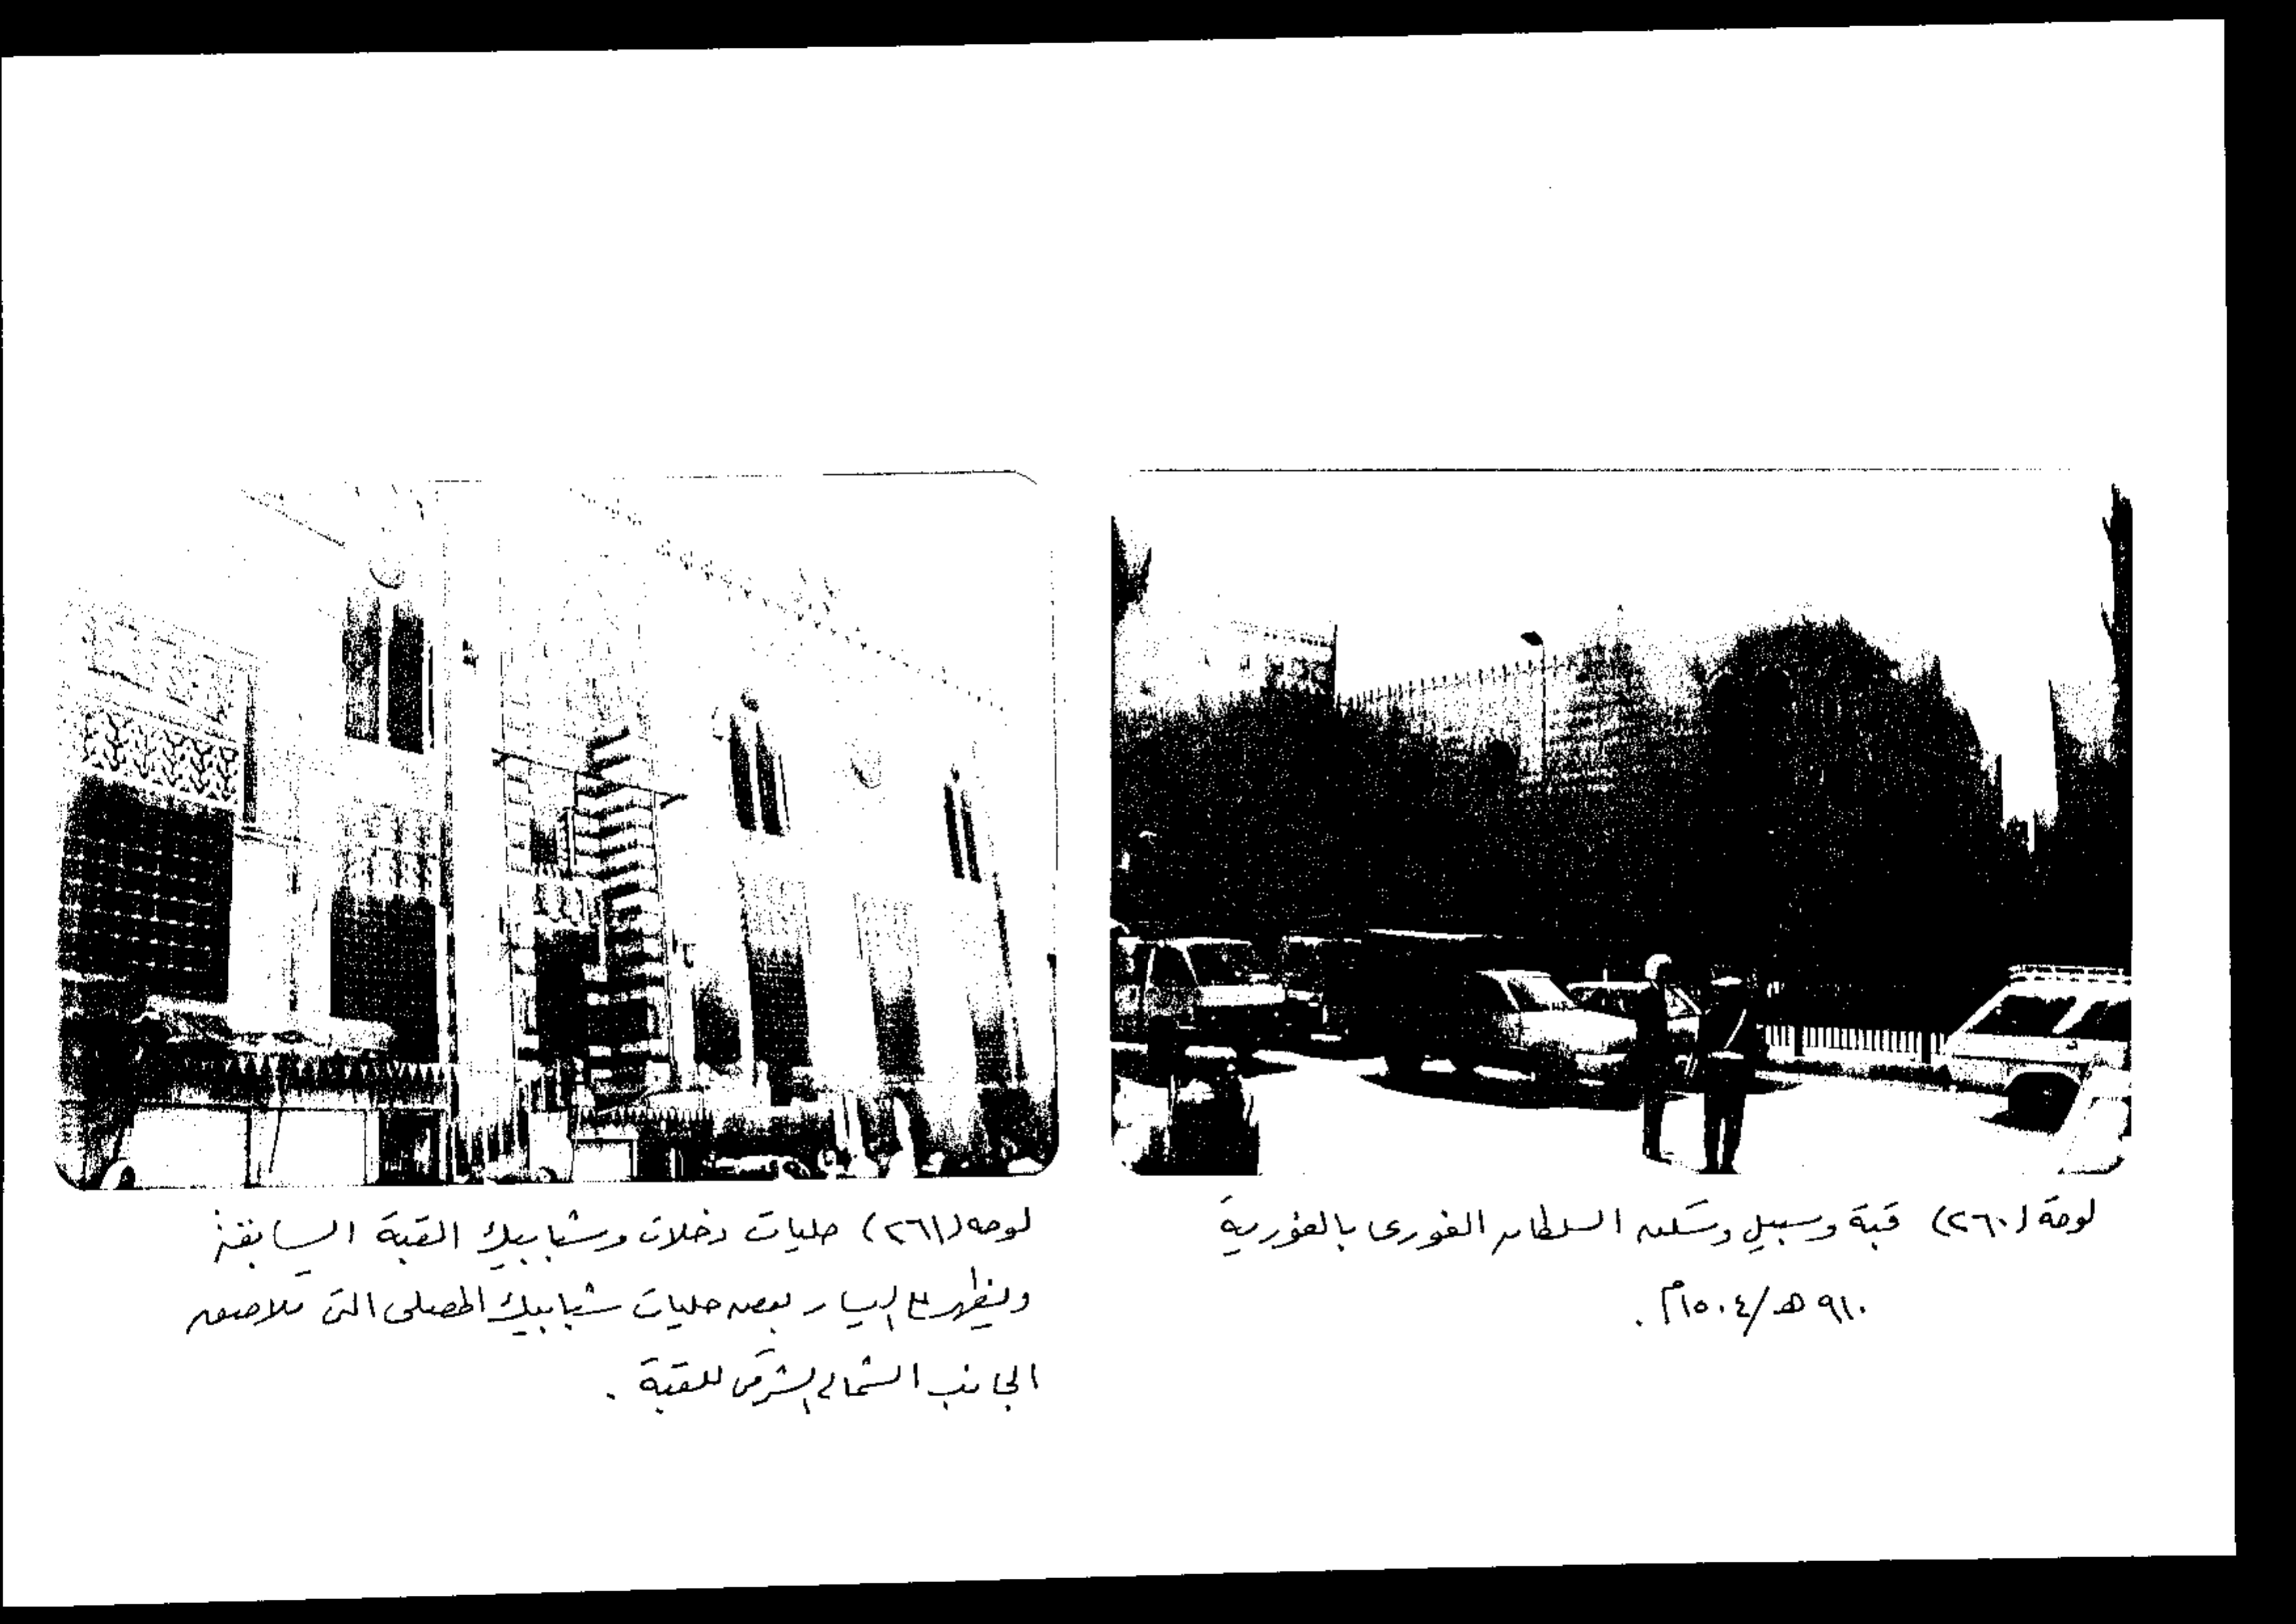 لوحة (٢٦٠) قبة وسبيل وسكن السلطان الغورى بالغورية
٩١٠ هـ/١٥٠٤م.
لوحه (٢٦١) حليات دخلات وشبابيك القبة السابقة
ويظهر على اليسار بعض حليات شبابيك المصلى التى تلاصق
الجانب الشمالى الشرقى للقبة.